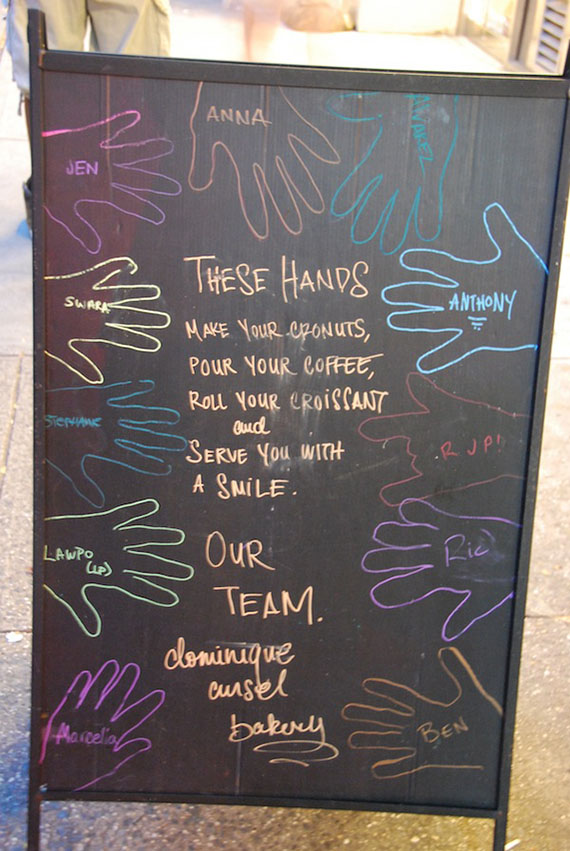 ANNA
JEN
THESE HANDS
SWARA
ANTHONY
MAKE YOUR CRONUTS,
POUR YOUR COFFEE,
ROLL YOUR CROISSANT
and
STEPHANE
SERVE YOU WITH
A SMILE.
R JP!
OUR
LAWPO
(LP)
Ric
TEAM.
dominique
ansel
bakery
Marcella
BEN